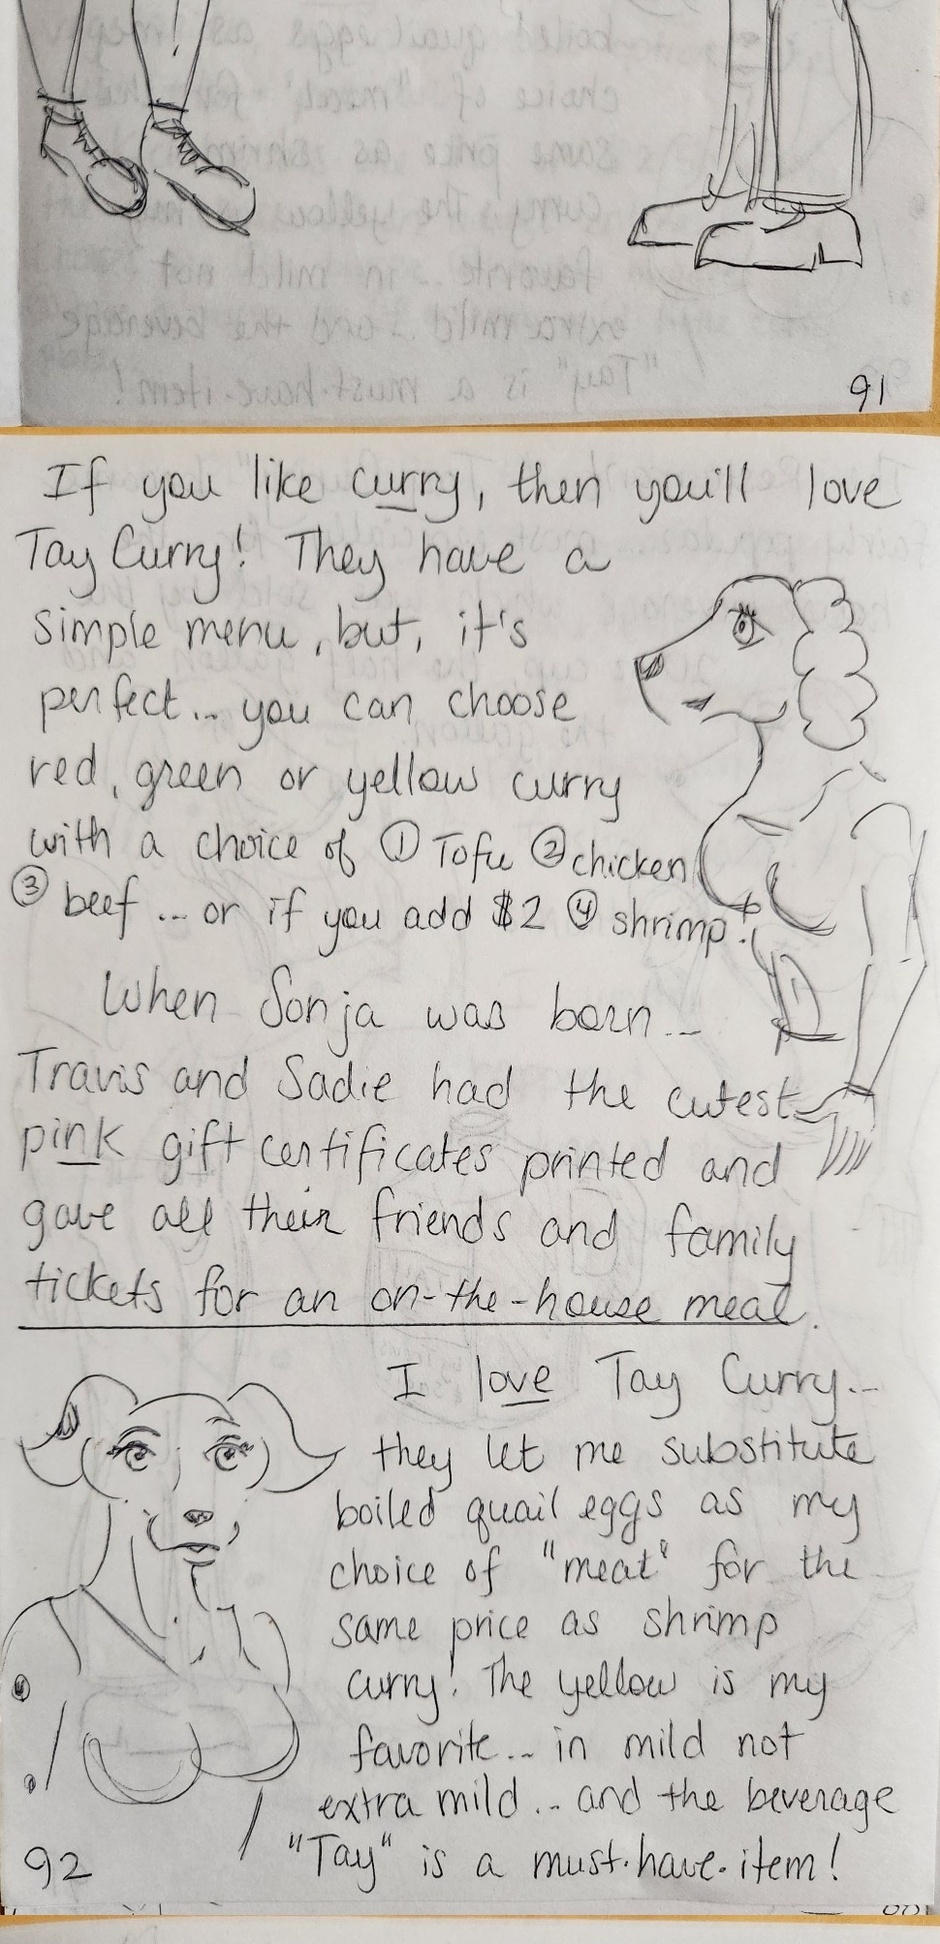 91
If you like curry, then you'll love
Tay Curry! They have a
simple menu, but, it's
perfect... you can choose
red, green or yellow curry
with a choice of ① Tofu ② chicken
③ beef ... or if you add $2 ④ shrimp!
When Sonja was born...
Travis and Sadie had the cutest
pink gift certificates printed and
gave all their friends and family
tickets for an on-the-house meal.
I love Tay Curry...
they let me substitute
boiled quail eggs as my
choice of "meat" for the
same price as shrimp
curry! The yellow is my
favorite... in mild not
extra mild... and the beverage
"Tay" is a must-have-item!
92